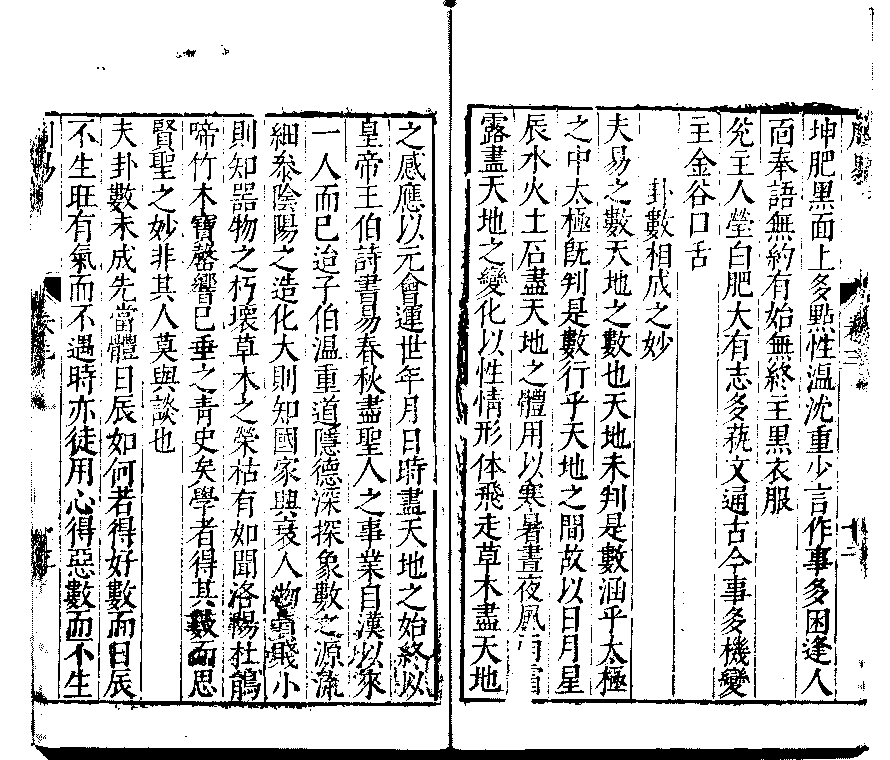 坤肥黑面上多點性溫沈重少言作事多困逢人
而奉語無約有始無終主黑衣服
兊主人瑩白肥大有志多藝文通古今事多機變
主金谷口舌
卦數相成之妙
夫易之數天地之數也天地未判是數涵乎太極
之中太極旣判是數行乎天地之間故以日月星
辰水火土石盡天地之體用以寒暑晝夜風雨
露盡天地之變化以性情形体飛走草木盡天地
之感應以元會運世年月日時盡天地之始終以
皇帝王伯詩書易春秋盡聖人之事業自漢以來
一人而已迨子伯溫重道隱德深探象數之源流
細叅陰陽之造化大則知國家興衰人物賤小
則知器物之朽壞草木之榮枯有如聞洛陽杜鵑
啼竹木寶罄響已垂之青史矣學者得其數而思
賢聖之妙非其人莫與談也
夫卦數未成先當體日辰如何若得好數而日辰
不生旺有氣而不遇時亦徒用心得惡數而不生